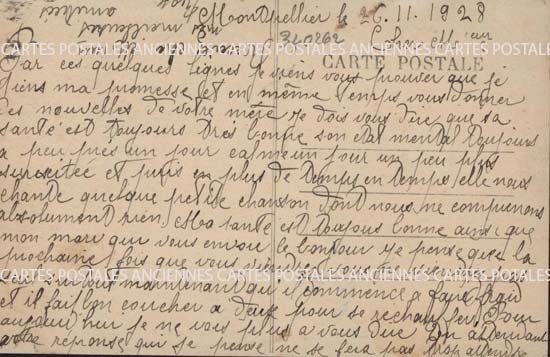 Montpellier le 26.11.1928
310262
Cher Monsieur
CARTE POSTALE
Par ces quelques lignes je viens vous prouver que je
tiens ma promesse et en même temps vous donner
des nouvelles de votre mère je dois vous dire que sa
santé est toujours très bonne son état mental toujours
a peu près un jour calme un jour un peu plus
surexcitée et puis en plus de temps en temps elle nous
chante quelque petite chanson dont nous ne comprenons
absolument rien Ma santé est toujours bonne ainsi que
mon mari qui vous envoie le bonjour je pense que la
prochaine fois que vous
maintenant qu'il commence a faire froid
et il fait bon coucher a deux pour se rechauffer Pour
aujourd'hui je ne vois plus a vous dire En attendant
votre réponse qui je pense ne se fera pas trop attendre
CARTES POSTALES ANCIENNES CARTES POSTALES ANCIENNES CARTES POSTALES